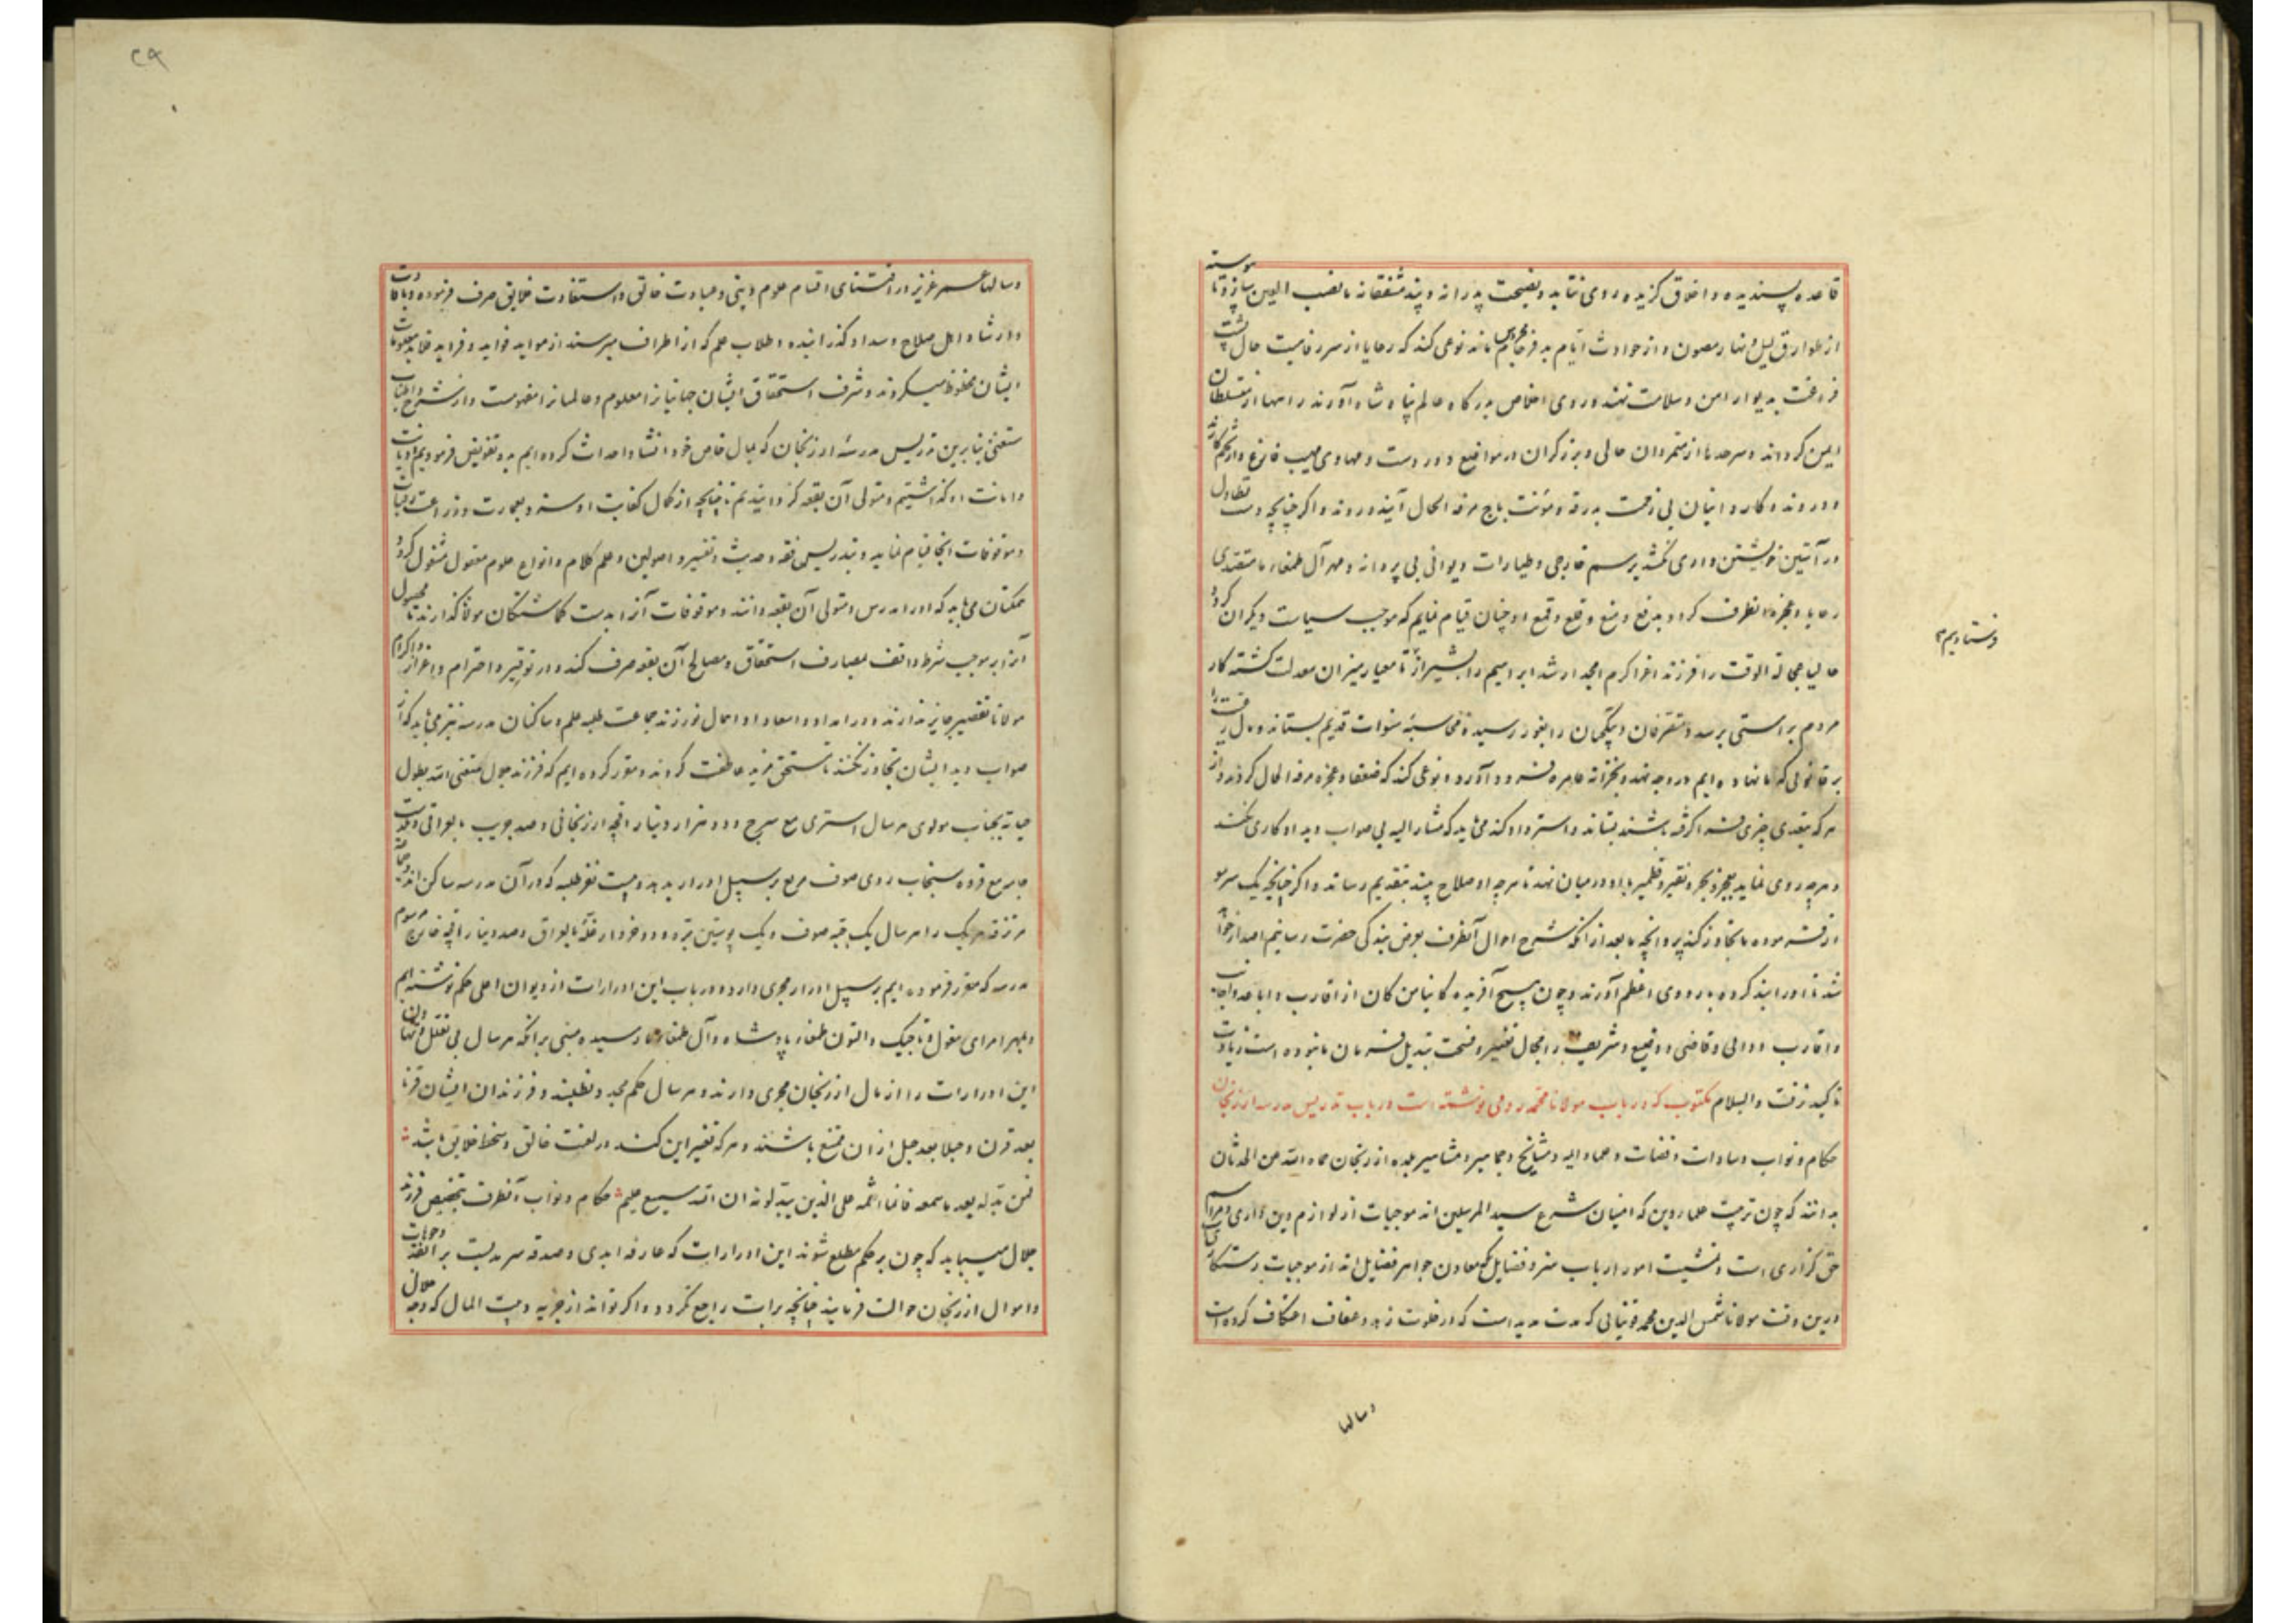 قاعده پسندیده و اخلاق گزیده روی نماید و نصیحت پدرانه و پند مشفقانه ما نصب العین سازد و تا پیوسته
از طوارق لیل و نهار مصون و از حوادث ایام به فرجام محروس ماند نوعی کند که رعایا از سر رفاهیت حال پشت
فراغت به دیوار امن و سلامت نهند و روی اخلاص بدرگاه عالم پناه شاه آورند راهها از متسلطان
ایمن کرداند و سرحدها از متمردان خالی و برزگران در مواضع دور دست و مهاوی مهیب فارغ و
دوروند و کاروانیان بی زحمت بدرقه و مؤنت باج مرفه الحال آیند و روند و اگر چنانچه دست تطاول
در آستین خویشتن داری نکشد برسم خارجی و طیارات دیوانی بی پروانه و مهر آل طمغاء ما متصدی
رعایا و عجزه آنطرف کردد بدفع و منع و قلع و قمع او چنان قیام نمایم که موجب سیاست دیگران کردد
حالیا عجالة الوقت را فرزند اعز اکرم امجد ارشد ابراهیم را بشیراز تا معیار میزان معدلت کشته کار
فرستادیم
مردم براستی برسد و متصرفان و پیتکچیان را بغور رسیده محاسبهٔ سنوات قدیم بستاند و مال
بر قانونی که ما نهاده ایم در وجه نهد و بخزانه عامره فرود آورد و نوعی کند که ضعفا و عجزه مرفه الحال کردند و از
هر که بتعدی چیزی فرا گرفته باشند بستاند و استرداد کند می باید که مشار الیه بی صواب دید او کاری نکنند
و هر چه روی نماید بعجر و بجر و نقیر و قطمیر با او در میان نهد تا هر چه او صلاح بیند بتقدیم رساند و اگر چنانچه یک سر مو
از فرموده ما تجاوز کند پروانچه ما بعد از آنکه شرح احوال آنطرف بعرض بندکی حضرت رسانیم اصدار خواهد
شد تا او را بند کرده باردوی اعظم آورند و چون هیچ آفریده کاینا من کان از اقارب و اباعد و اجانب
و اقارب و والی و قاضی و وضیع و شریف را مجال تغییر و فسحت تبدیل فرمان ما نبوده است زیادت
تاکید نرفت والسلام مکتوب که در باب مولانا محمد رومی نوشته است در باب تدریس مدرسه ارزنجان
حکام و نواب و سادات و قضات و عماد الیه و مشایخ و جماهیر و مشاهیر بلده ارزنجان حماه الله عن الحدثان
بدانند که چون تربیت علماء دین که امینان شرع سید المرسلین اند موجبات از لوازم دین داری و مراسم
حق گزاری است و تمشیت امور ارباب هنر و فضایل که معادن جواهر فضایل اند از موجبات رستکاری
درین وقت مولانا شمس الدین محمد قونیائی که مدت مدید است که در خلوت زهد و عفاف اعتکاف کرده است
وسالها
۲۹
وسالها عمر عزیز در اقتنای اقسام علوم دینی و عبادت خالق و استفادت خلایق صرف فرموده
و ارشاد اهل صلاح و سداد گذرانیده و طلاب علم که از اطراف میرسند از مواید فواید و فراید
ایشان محظوظ میکردند و شرف استحقاق ایشان جهانیانرا معلوم و عالمیانرا مفهومست و از شرح و اطناب
مستغنی بنابرین تدریس مدرسهٔ ارزنجان که بمال خاص خود انشا و احداث کرده ایم بدو تفویض فرمودیم و بدیانت
و امانت او گذاشتیم و متولی آن بقعه کردانیدیم تا چنانچه از کمال کفایت او سزد بعمارت و زراعت رقبات
و موقوفات آنجا قیام نماید و بتدریس فقه و حدیث و تفسیر و اصولین و علم کلام و انواع علوم معقول مشغول کردد
همکنان می باید که او را مدرس و متولی آن بقعه دانند و موقوفات آنرا بدست گماشتگان مولانا گذارند تا محصول
آنرا بر موجب شرط واقف بمصارف استحقاق و مصالح آن بقعه صرف کند و در توقیر و احترام و اعزاز و اکرام
مولانا تقصیر جایز ندارند و در امداد و اسعاد او اهمال نورزند جماعت طلبه علم و ساکنان مدرسه نیز می باید که از
صواب دید ایشان تجاوز نکنند تا مستحق مزید عاطفت کردند و مقرر کرده ایم که فرزند جلال متعنی الله بطول
حیاته بجناب مولوی هر سال استری مع سرج و دو هزار دینار اقچه ارزنجانی و صد جریب
جامه مع فروه سنجاب روی صوف مربع بر سبیل ادرار بدهد و بیست نفر طلبه که در آن مدرسه ساکن اند
مرتزقه هر یک را هر سال یک جبه صوف و یک پوستین بره و دو خروار غله و صد دینار اقچه مرسوم
مدرسه که مقرر فرموده ایم بر سبیل ادرار مجری دارد و در باب این ادرارات از دیوان اعلی حکم نوشته ایم
و بمهر امرای مغول و تاجیک و التون طمغاء پادشاه و آل طمغاء ما رسیده مبنی بر آنکه هر سال بی تعلل و تهاون
این ادرارات را از مال ارزنجان مجری دارند و هر سال حکم مجدد نطلبند و فرزندان ایشان قرنا
بعد قرن و جیلا بعد جیل از آن متمتع باشند و هر که تغییر این کند در لعنت خالق و سخط خلایق باشد
فمن بدله بعد ما سمعه فانما اثمه علی الذین یبدلونه ان الله سمیع علیم حکام و نواب آنطرف بتخصیص فرزند
جلال میباید که چون بر حکم مطلع شوند این ادرارات که عارفه ابدی و صدقه سرمدیست بر وجوهات
و اموال ارزنجان حوالت فرمایند چنانچه برات راجع نکردد و اگر تواند از جزیه و بیت المال که وجه حلال